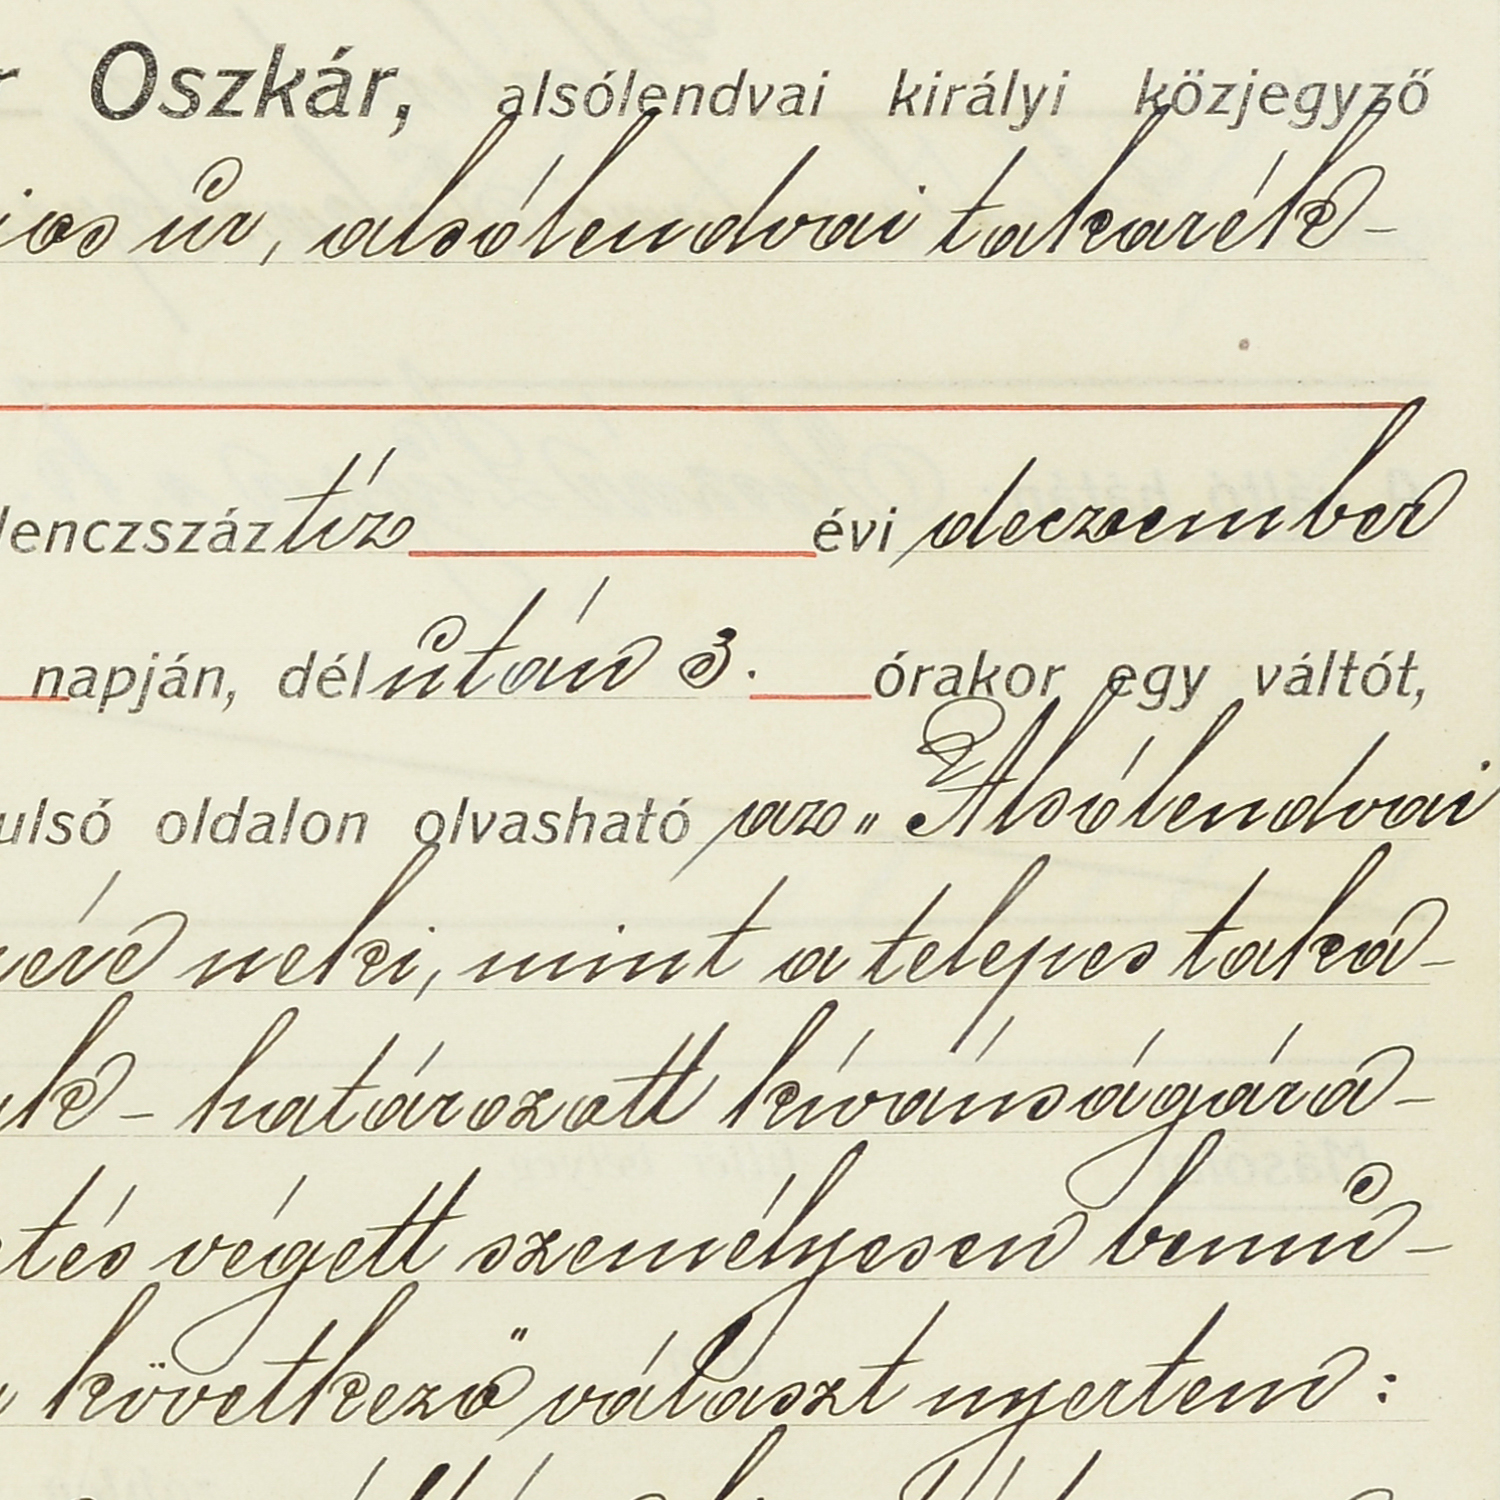 r Oszkár, alsólendvai királyi közjegyző
ios úr, alsólendvai takarék-
lenczszáz tíz évi deczember
napján, dél után 3. órakor egy váltót,
ulsó oldalon olvasható az „Alsólendvai
neki, mint a telepes taka-
uk - határozott kívánságára-
etés végett személyesen benn-
következő választ nyertem: